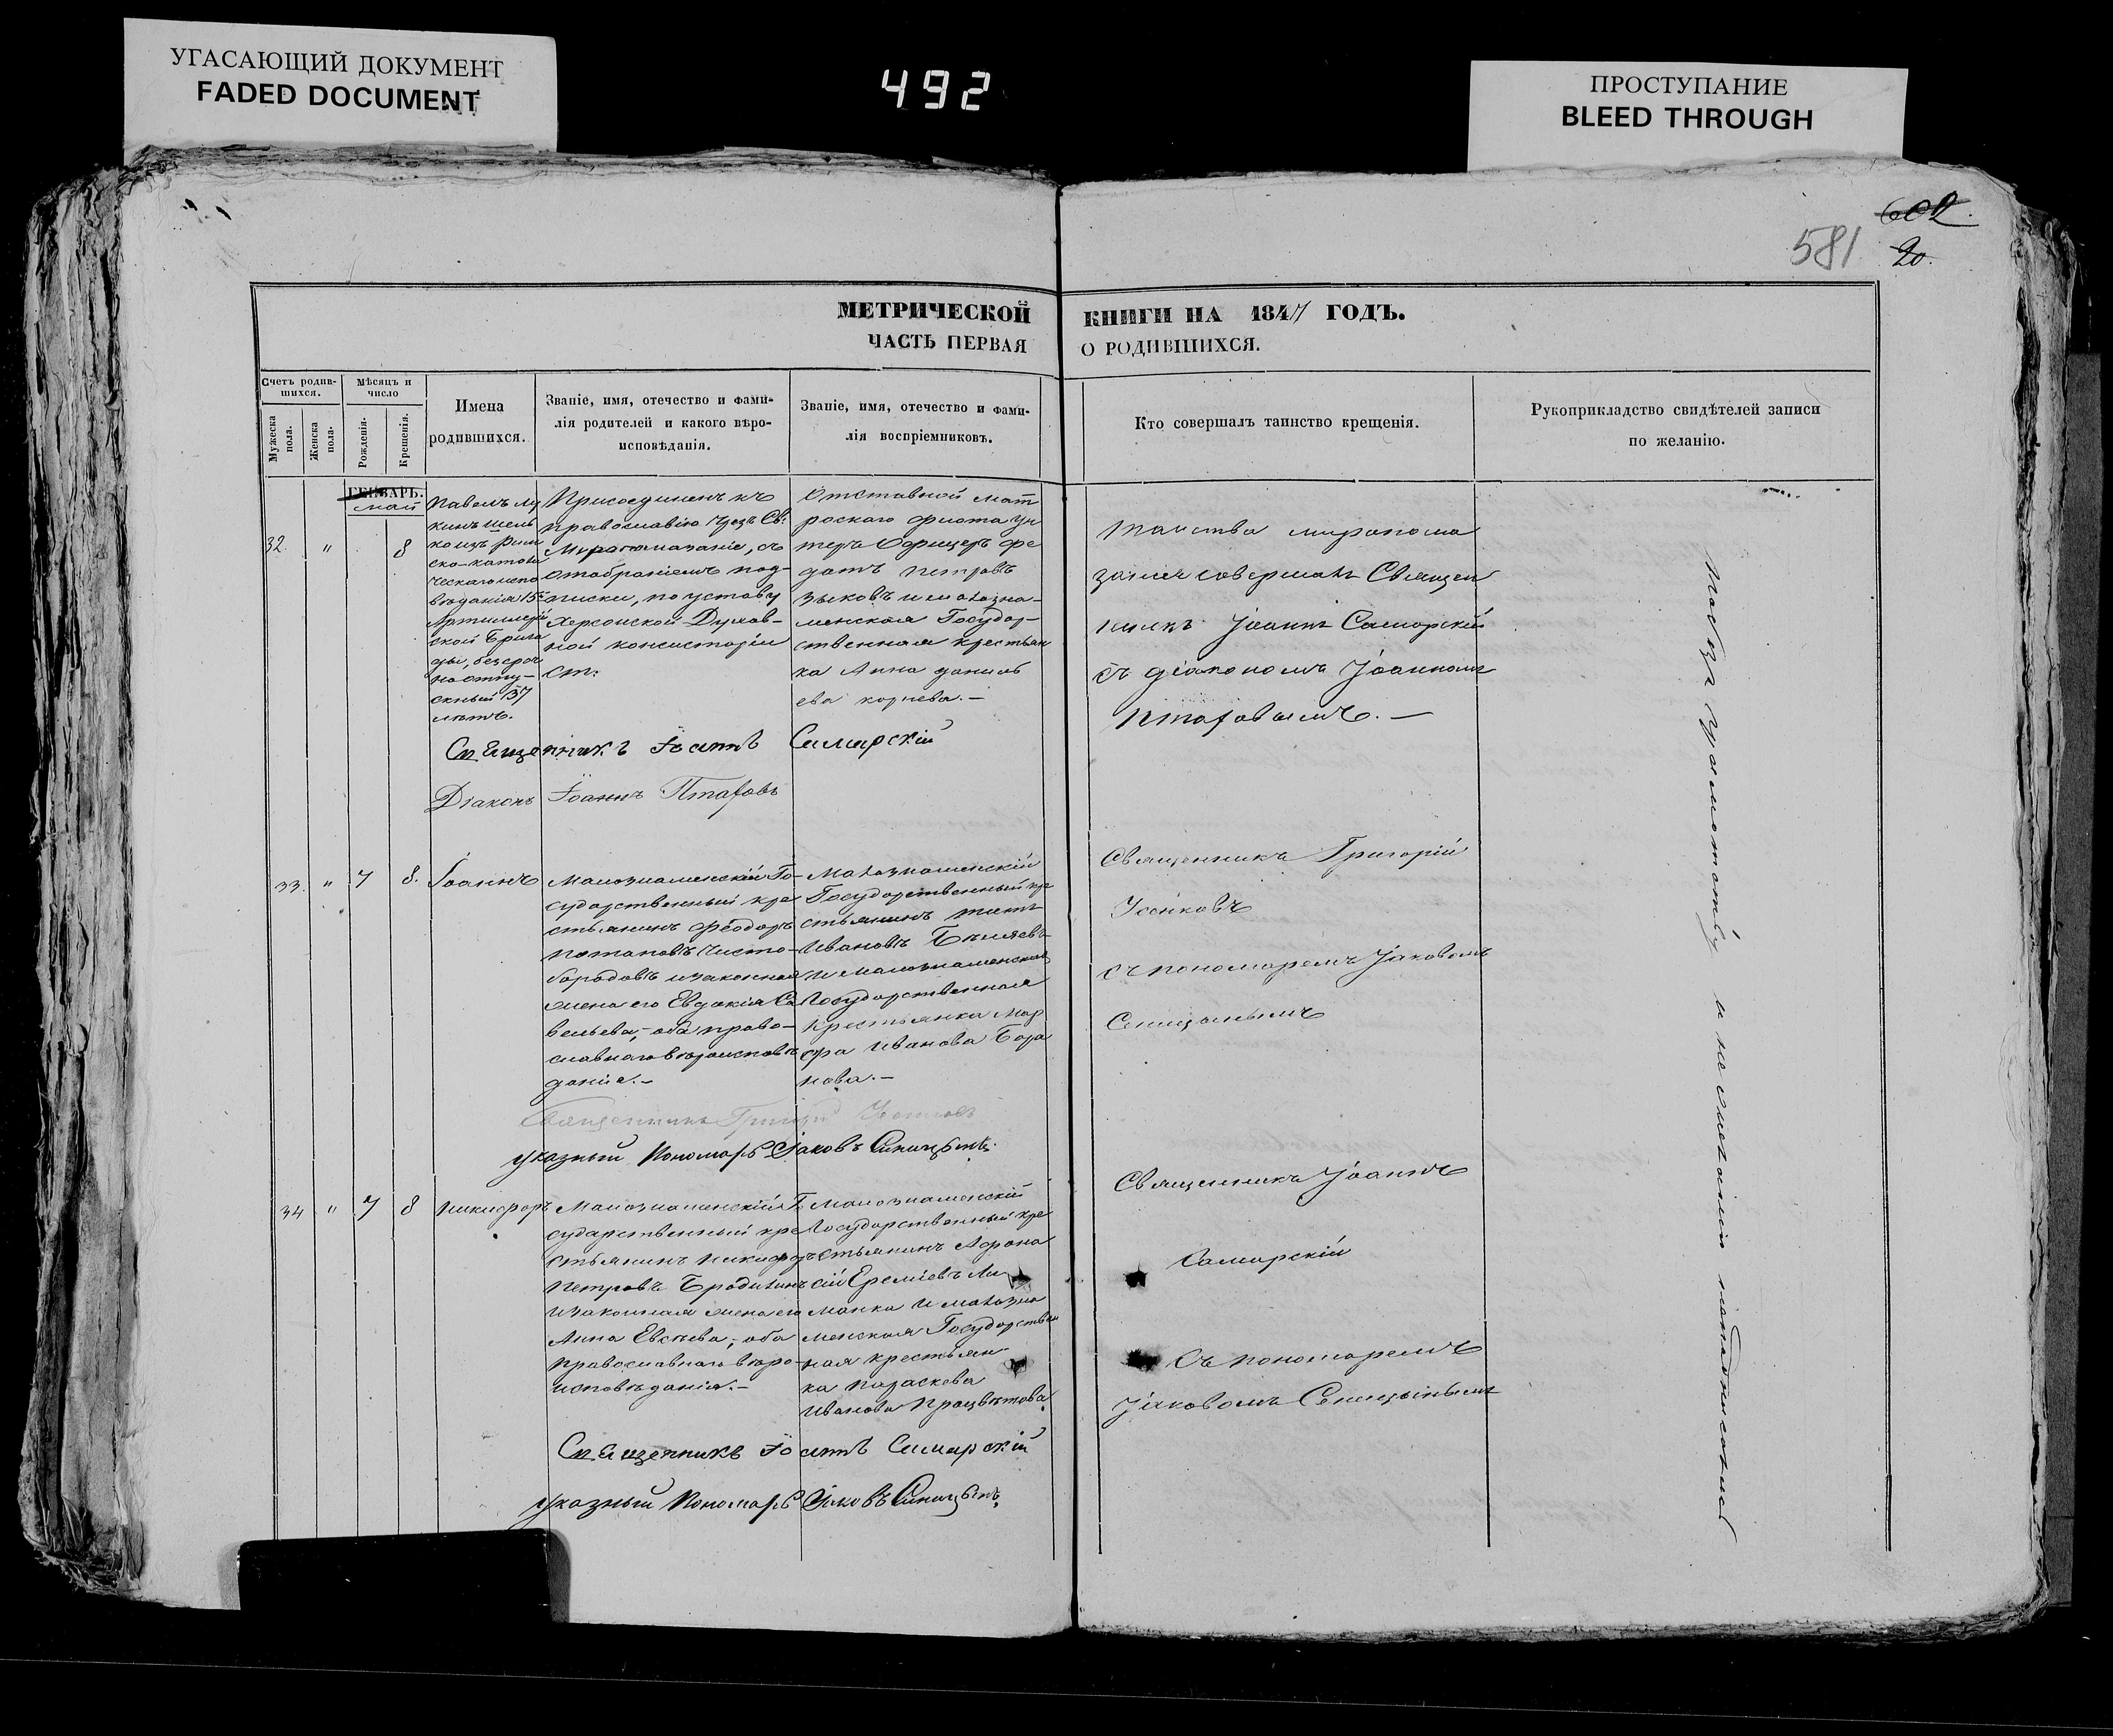 УГАСАЮЩИЙ ДОКУМЕНТ
FADED DOCUMENT
492
ПРОСТУПАНИЕ
BLEED THROUGH
602.
581
20.
МЕТРИЧЕСКОЙ КНИГИ НА 1847 ГОДЪ.
ЧАСТЬ ПЕРВАЯ О РОДИВШИХСЯ.
Счетъ родив-
шихся.
Мужеска пола.
Женска пола.
Мѣсяцъ и
число
Рожденія.
Крещенія.
Имена
родившихся.
Званіе, имя, отечество и фами-
лія родителей и какого вѣро-
исповѣданія.
Званіе, имя, отечество и фами-
лія воспріемниковъ.
Кто совершалъ таинство крещенія.
Рукоприкладство свидѣтелей записи
по желанію.
ГЕНВАРЬ.
май
32. " 8
Павелъ Лу
кинъ
комъ Рим
ско-католи
ческаго испо
вѣданія 15й
Артиллерій
ской Брига
ды, безсроч
но отпу-
скный 37
лѣтъ.
Присоединенъ къ
православію чрезъ Св:
Муропомазаніе, съ
отобраніемъ под-
писки, по уставу
Херсонской Духов-
ной консисторіи
ст:
Отставной мат
роскаго флота Ун
теръ Офицеръ Фе
дотъ Петровъ
Зыковъ и малозна-
менская Государ-
ственная крестьян
ка Анна Данилъ
ева Корнева.-
Таинство миропома
занія совершалъ Священ
никъ Іоаннъ Самарскій
съ діакономъ Іоанномъ
Птаховымъ.-
Священникъ Іоаннъ Самарскій
Діаконъ Іоаннъ Птаховъ
33. " 7 8. Іоаннъ
Малознаменскій Го-
сударственный кре
стьянинъ Феодоръ
Потаповъ Чисто-
бородовъ и законная
жена его Евдокія Са
вельева,-оба право-
славнаго вѣроисповѣ
данія.-
Малознаменскій
Государственный кре
стьянинъ Титъ
Ивановъ Бѣляевъ
и малознаменская
Государственная
Крестьянка Мар
фа Иванова Бара
нова.-
Священникъ Григорій
Усенковъ
съ пономаремъ Іаковомъ
Синицынымъ
Священникъ Григорій
указный Пономарь Іаковъ Синицынъ.
34 " 7 8 Никифоръ
Малознаменскій Го
сударственный кре
стьянинъ Никифоръ
Петровъ Бродилинъ
и законная жена его
Анна Евсѣева,-оба
православнаго вѣро-
исповѣданія.-
Малознаменскій
Государственный кре
стьянинъ Афана
сій Еремѣевъ
манка и малозна
менская Государствен
ная крестьян
ка Параскева
Иванова Процвѣтова.
Священникъ Іоаннъ
Самарскій
съ пономаремъ
Іаковомъ Синицынымъ
Священникъ Іоаннъ Самарскій
указный Пономарь Іаковъ Синицынъ.